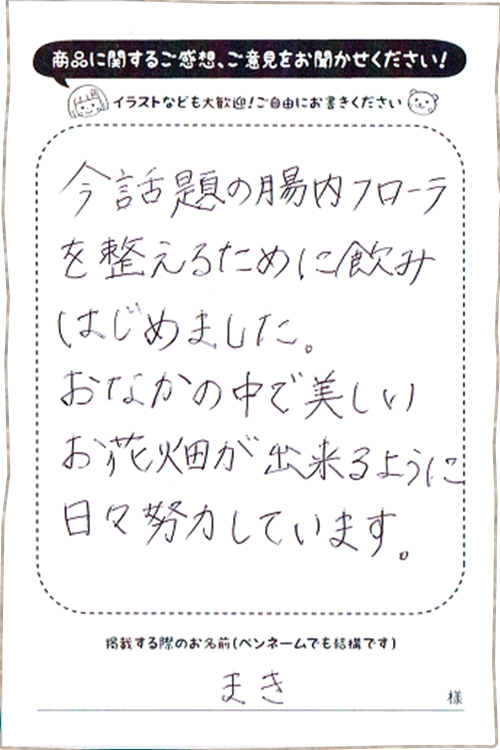 商品に関するご感想、ご意見をお聞かせください!
イラストなども大歓迎!ご自由にお書きください
今話題の腸内フローラ
を整えるために飲み
はじめました。
おなかの中で美しい
お花畑が出来るように
日々努力しています。
掲載する際のお名前(ペンネームでも結構です)
まき 様